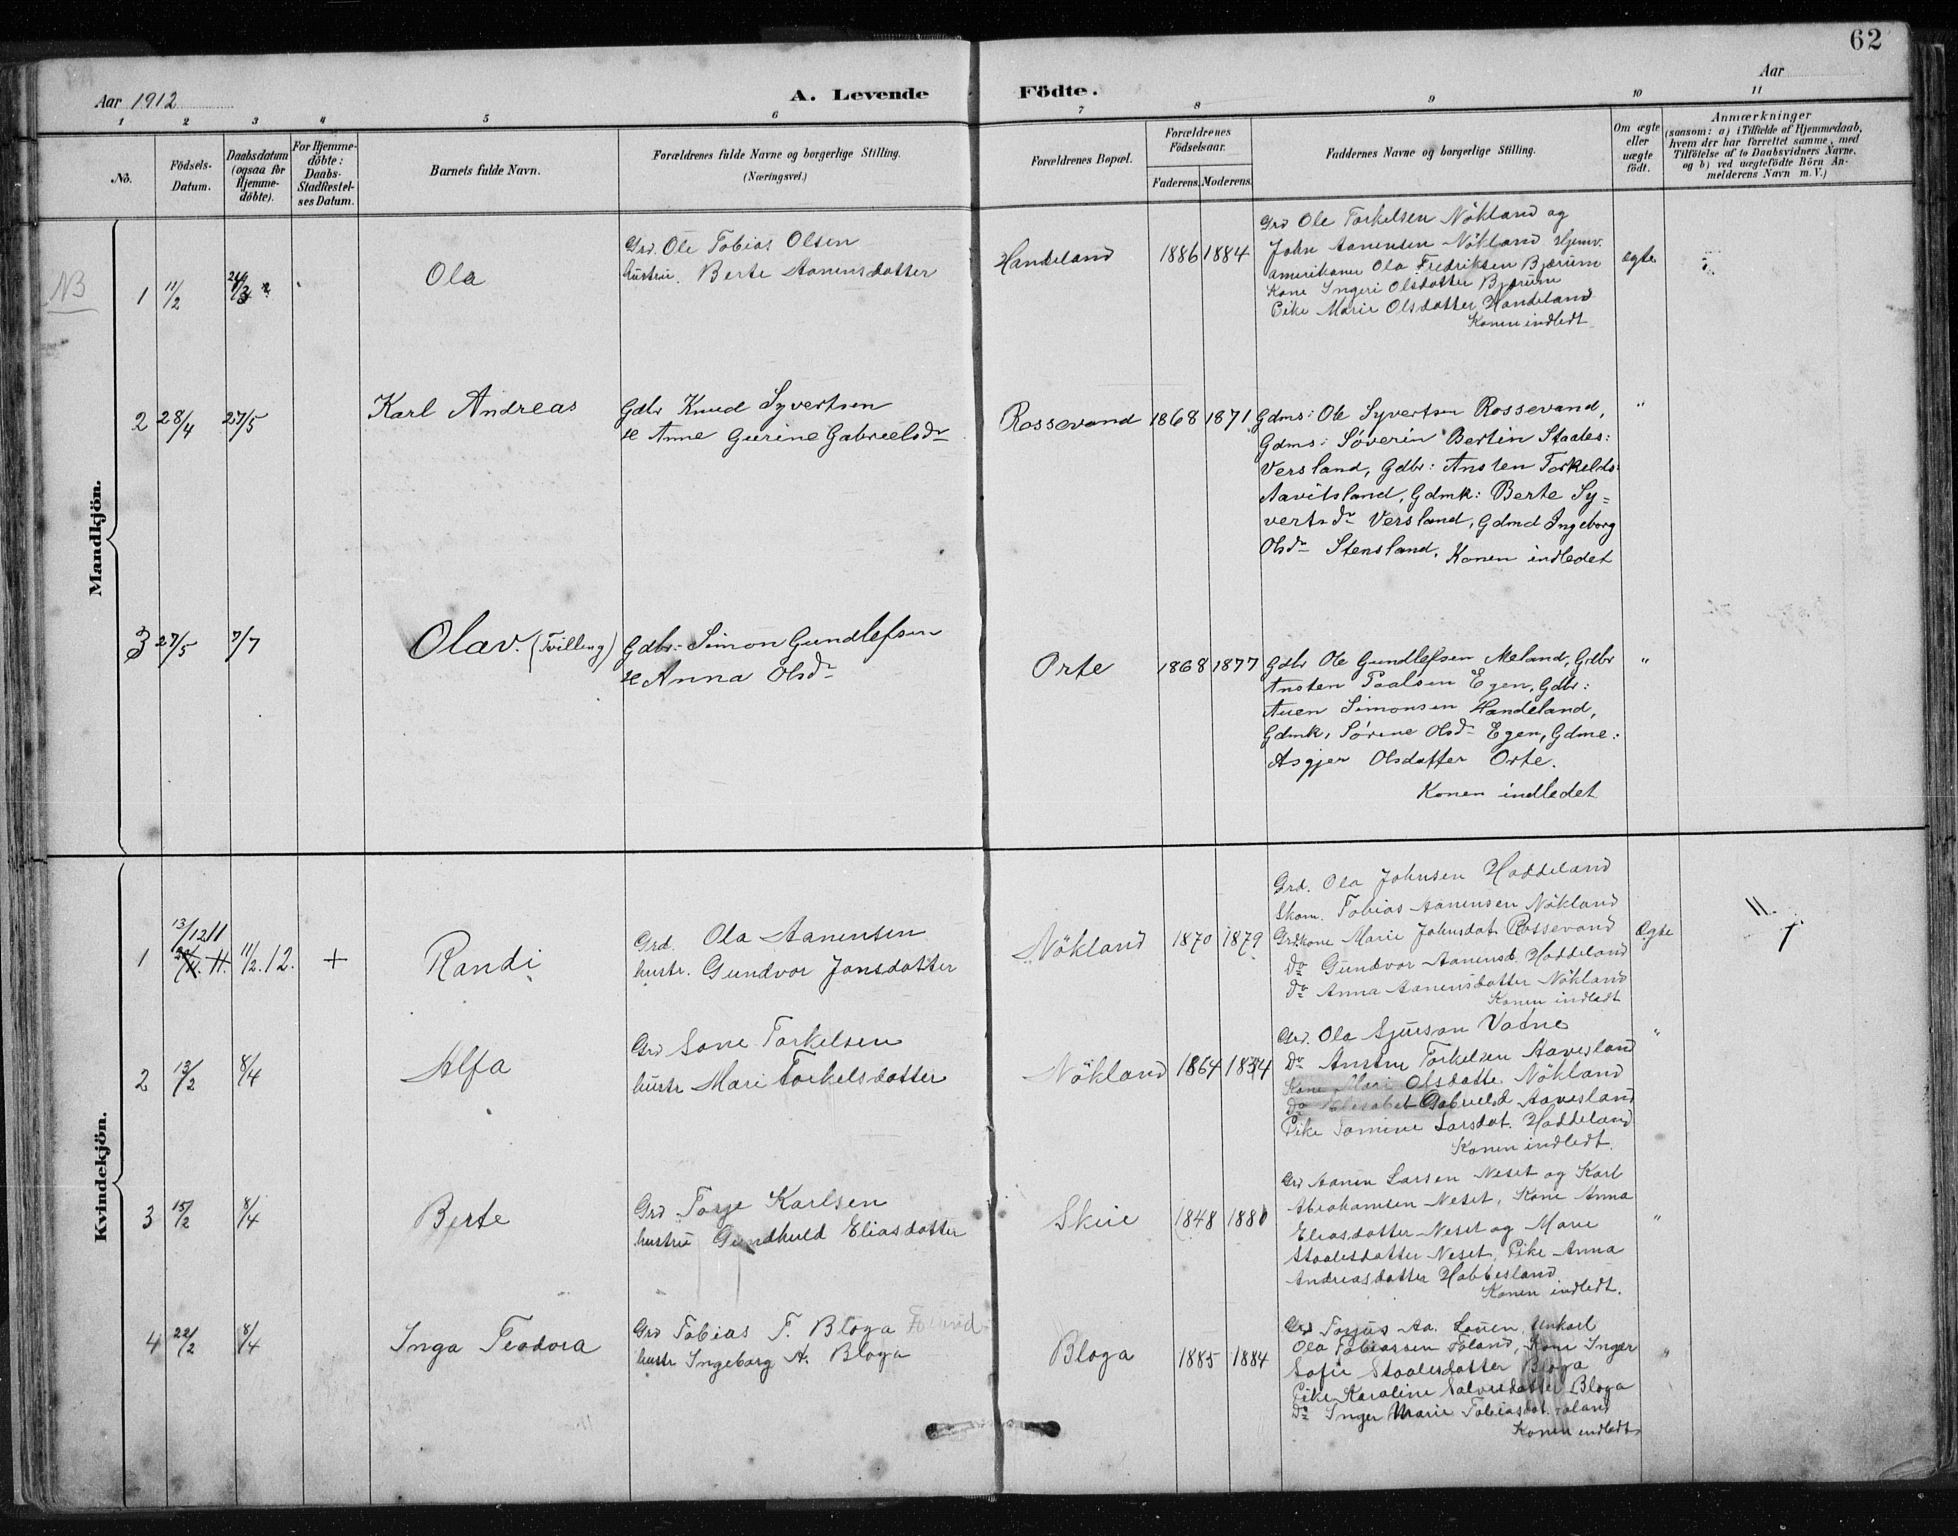 62
Aar 1912
A. Levende Födte.
Aar
1 2 3 4 5 6 7 8 9 10 11
No.
Födsels-Datum.
Daabsdatum (ogsaa for Hjemme-døbte).
For Hjemme-døbte: Daabs-Stadfæstel-ses Datum.
Barnets fulde Navn.
Forældrenes fulde Navne og borgerlige Stilling.
(Næringsvei.)
Forældrenes Bopæl.
Forældrenes Födselsaar.
Faderens. Moderens.
Faddernes Navne og borgerlige Stilling.
Om ægte eller uægte født.
Anmærkninger
(saasom: a) i Tilfælde af Hjemmedaab,
hvem der har forrettet samme, med
Tilföielse af to Daabsvidners Navne.
og b) ved uægtefödte Börn An-
melderens Navn m. V.)
Mandkjön.
NB
1 11/2
Ola
Grd. Ole Tobias Olsen
hustru. Berte Aanensdatter
Handeland
1886 1884
Grd Ole Torkelsen Nökland og
John Aanensen Nökland Hjemv.
amerikaner Ola Fredriksen Bjærum
Kone Ingeri Olsdatter Bjærum
Pike Marie Olsdatter Handeland
Konen indledt
ægte
2 28/4 27/5
Karl Andreas
Gdbr Knud Syvertsen
H Anne Gurine Gabrielsdr
Rossevand
1868 1871
Gdms: Ole Syvertsen Rossevand,
Gdms: Søverin Bertin Staales:
Versland, Gdbr: Ansten Torkelds:
Aavitsland, Gdmk: Berte Sy=
vertsdr Versland, Gdmd Ingeborg
Olsdr Stensland. Konen indledet
"
3 27/5 7/7
Olav. (Tvilling)
Gdbr: Simon Gundlefsen
H Anna Olsdr
Orte
1868 1877
Gdbr Ole Gundlefsen Meland, Gdbr
Ansten Paalsen Egen, Gdbr:
Auen Simonsen Handeland,
Gdmk, Sørine Olsdr Egen, Gdme:
Asgjer Olsdatter Orte.
Konen indledet
"
Kvindekjön.
1 13/12 11 11/2.12. +
Randi
Grd. Ola Aanensen
hustr. Gundvor Jonsdatter
Nökland
1870 1879
Grd. Ola Johnsen Haddeland
Skom. Tobias Aanensen Nökland
Grdkone Marie Johnsdat. Rossevand
Do Gundvor Aanensd. Haddeland
Do Anna Aanensdatter Nökland
Konen indledt
Ægte
11.
2 13/2 8/4
Alfa
Grd Lone Torkelsen
hustr Mari Torkelsdatter
Nökland
1864
Grd. Ola Sjursen Vadne
Do Ansten Torkelsen Aavesland
Kone Mari Olsdatte Nökland
Do Elisabet Gabrielsd Aavesland
Pike Samine Larsdat. Haddeland
Konen indledt.
"
3 15/2 8/4
Berte
Grd Torje Karlsen
hustru Gundhuld Eliasdatter
Skeie
1848
Grd Aanen Larsen Neset og Karl
Abrahamsen Neset, Kone Anna
Eliasdatter Neset og Marie
Staalesdatter Neset, Pike Anna
Andreasdatter Habbesland.
Konen indledt.
"
4 22/2 8/4
Inga Teodora
Grd Tobias T. Bloga
hustr Ingeborg A. Bloga
Bloga
1885 1884
Grd Torjus Aa. Lauen, Unkarl
Ola Tobiassen Foland, Kone Inger
Sofie Staalesdatter Bloga
Pike Karoline Salvesdatter Bloga
Do Inger Marie Tobiasdat. Foland
Konen indledt
"